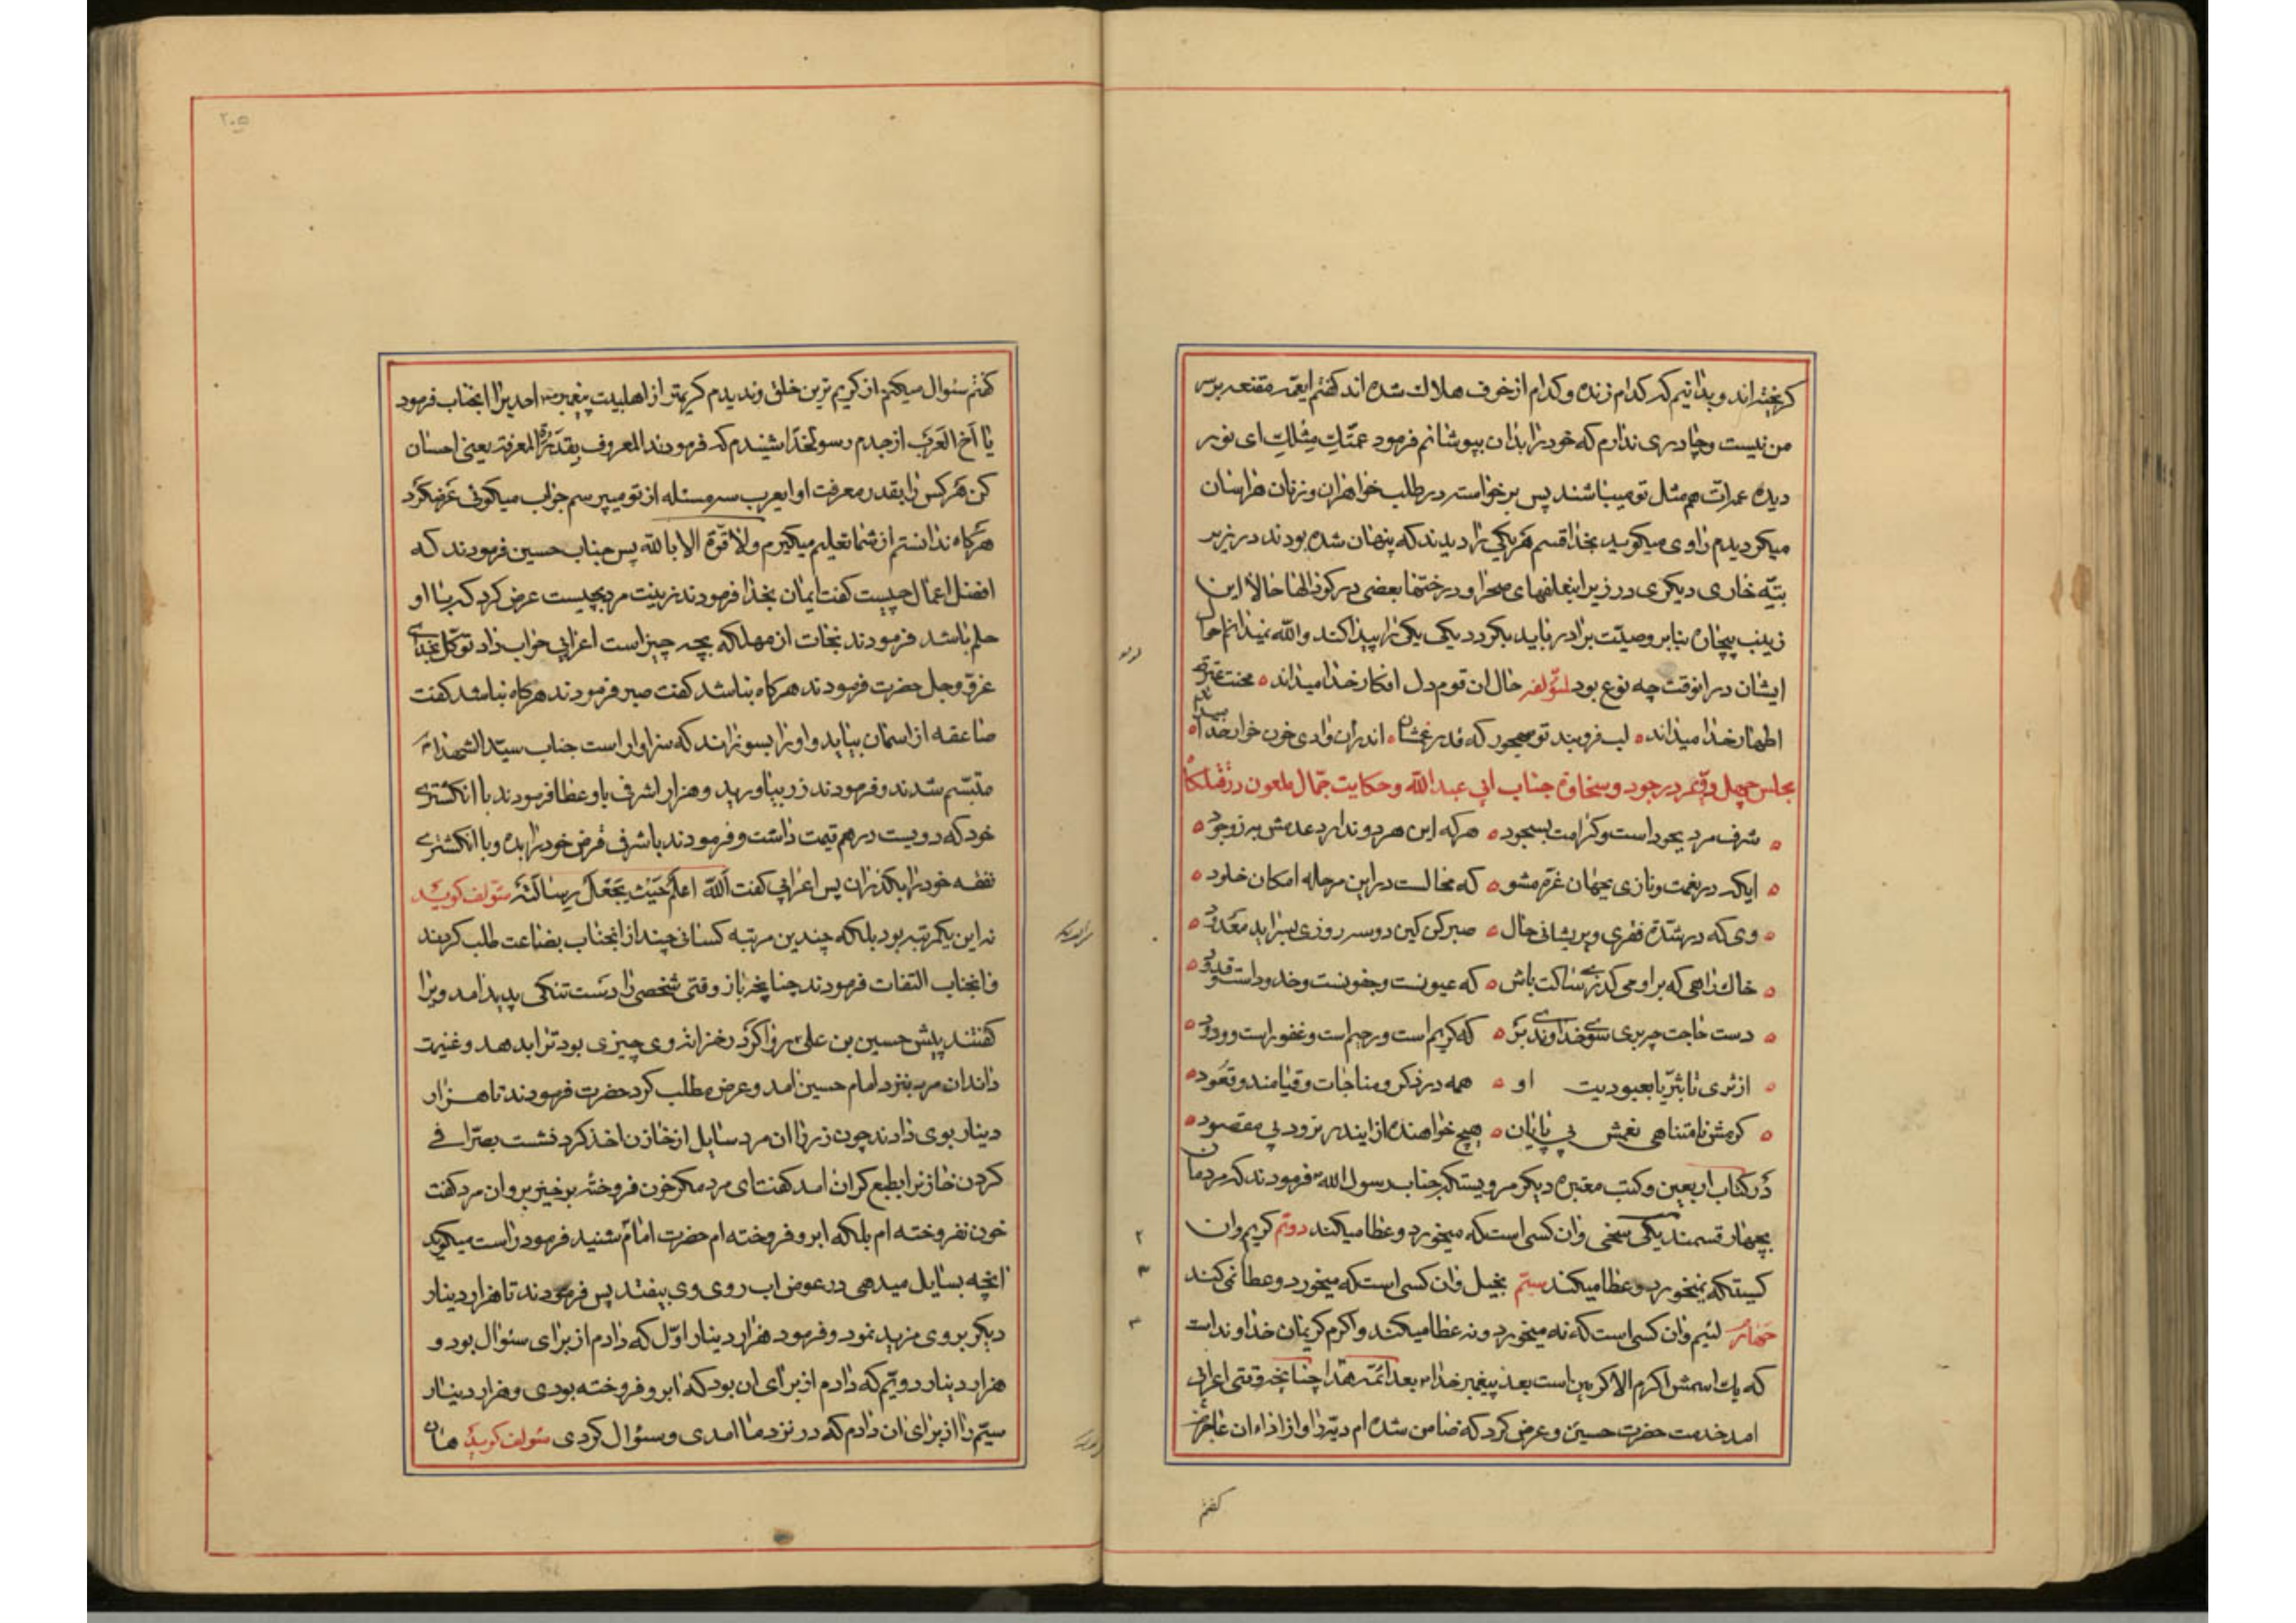 گریخته اند و بدانیم که کدام زنده و کدام از خوف هلاک شده اند گفتم ایعمه مقنعه بر سر
من نیست و چادری ندارم که خود را بدان بپوشانم فرمود عمتک مثلک ای نور
دیده عمه ات هم مثل تو میباشند پس برخواسته در طلب خواهران و زنان هراسان
میکردیدم راوی میکوید بخدا قسم هر یکی را دیدند که پنهان شده بودند در زیر
بته خاری دیکری در زیر علفهای صحرا و درختها بعضی در کودالها حالا این
زینب بیچاره بنابر وصیت برادر باید بکردد یکی یکی را پیدا کند والله نمیدانم حال
ایشان در انوقت چه نوع بود لمؤلفه حال ان قوم دل افکار خدا میداند محنت عترت
اطهار خدا میداند لب فروبند تو مهجور که قدر غمشان اندران وادی خون خوار خدا میداند
مجلس چهل و دویم در جود و سخاوة جناب ابی عبدالله و حکایت جمال ملعون در قتلکاه
شرف مرد بجود است و کرامت بسجود هر که این هر دو ندارد عدمش به ز وجود
ایکه در نعمت و نازی بجهان غره مشو که محالست در این مرحله امکان خلود
وی که در شدة فقری و پریشانی حال صبر کن کین دو سه روزی بسر اید معدود
خاک راهی که بر او می کذری ساکت باش که عیونست و جفونست و خدود است و قدود
دست حاجت چو بری سوی خداوندی بر که کریم است و رحیم است و غفور است و ودود
از ثری تا بثریا بعبودیت او همه در ذکر و مناجات و قیامند و قعود
کرمش نامتناهی نعمش بی پایان هیچ خواهنده از ایندر نرود بی مقصود
در کتاب اربعین و کتب معتبره دیکر مرویستکه جناب رسول الله ص فرمودند که مردمان
بچهار قسمند یکی سخی و ان کسی است که میخورد و عطا میکند دویم کریم و ان
کسیستکه نمیخورد و عطا میکند سیم بخیل و ان کسی است که میخورد و عطا نمی کند
چهارم لئیم و ان کسی است که نه میخورد و نه عطا میکند و اکرم کریمان خداوند است
که یک اسمش اکرم الاکرمین است بعد پیغمبر خدا ص بعد ائمه هدا چنانچه وقتی اعرابی
امد خدمت حضرت حسین و عرض کرد که ضامن شده ام دیه را و از اداء ان عاجزم
کفتم
۲۰۵
کفتم سئوال میکنم از کریم ترین خلق و ندیدم کریمتر از اهلبیت پیغمبر ص احدیرا انجناب فرمود
یا اخ العرب از جدم رسولخدا شنیدم که فرمودند المعروف بقدر المعرفة یعنی احسان
کن هر کس را بقدر معرفت او ایعرب سه مسئله از تو میپرسم جواب میکوئی عرضکرد
هرکاه ندانستم از شما تعلیم میکیرم ولا قوة الا بالله پس جناب حسین فرمودند که
افضل اعمال چیست کفت ایمان بخدا فرمودند زینت مرد بچیست عرض کرد که با او
حلم باشد فرمودند نجات از مهلکه بچه چیز است اعرابی جواب داد توکل بخدای
عزوجل حضرت فرمودند هرکاه نباشد کفت صبر فرمودند هرکاه نباشد کفت
صاعقه از اسمان بیاید و او را بسوزاند که سزاوار است جناب سید الشهداء
متبسم شدند و فرمودند زر بیاورید و هزار اشرفی باو عطا فرمودند با انکشتری
خود که دویست درهم قیمت داشت و فرمودند باشرفی قرض خود را بده و با انکشتری
نفقه خود را بکذران پس اعرابی کفت الله اعلم حیث یجعل رسالته مؤلف کوید
نه این یکمرتبه بود بلکه چندین مرتبه کسانی چند از انجناب بضاعت طلب کردند
و انجناب التفات فرمودند چنانچه باز وقتی شخصی را دست تنکی پدید امد ویرا
کفتند پیش حسین بن علی ع رو اکر در خزانه وی چیزی بود ترا بدهد و غنیت
داند ان مرد نزد امام حسین امد و عرض مطلب کرد حضرت فرمودند تا هزار
دینار بوی دادند چون زر را ان مرد سایل از خازن اخذ کرد نشست بصرافی
کردن خازن را بطبع کران امد کفت ای مرد مکر خون فروخته برخیز برو ان مرد کفت
خون نفروخته ام بلکه ابرو فروخته ام حضرت امام شنید فرمود راست میکوید
انچه بسایل میدهی در عوض اب روی وی بیفتد پس فرمودند تا هزار دینار
دیکر بر وی مزید نمود و فرمود هزار دینار اول که دادم از برای سئوال بود و
هزار دینار دویم که دادم از برای ان بود که ابرو فروخته بودی و هزار دینار
سیم را از برای ان دادم که در نزد ما امدی و سئوال کردی مؤلف کوید همان